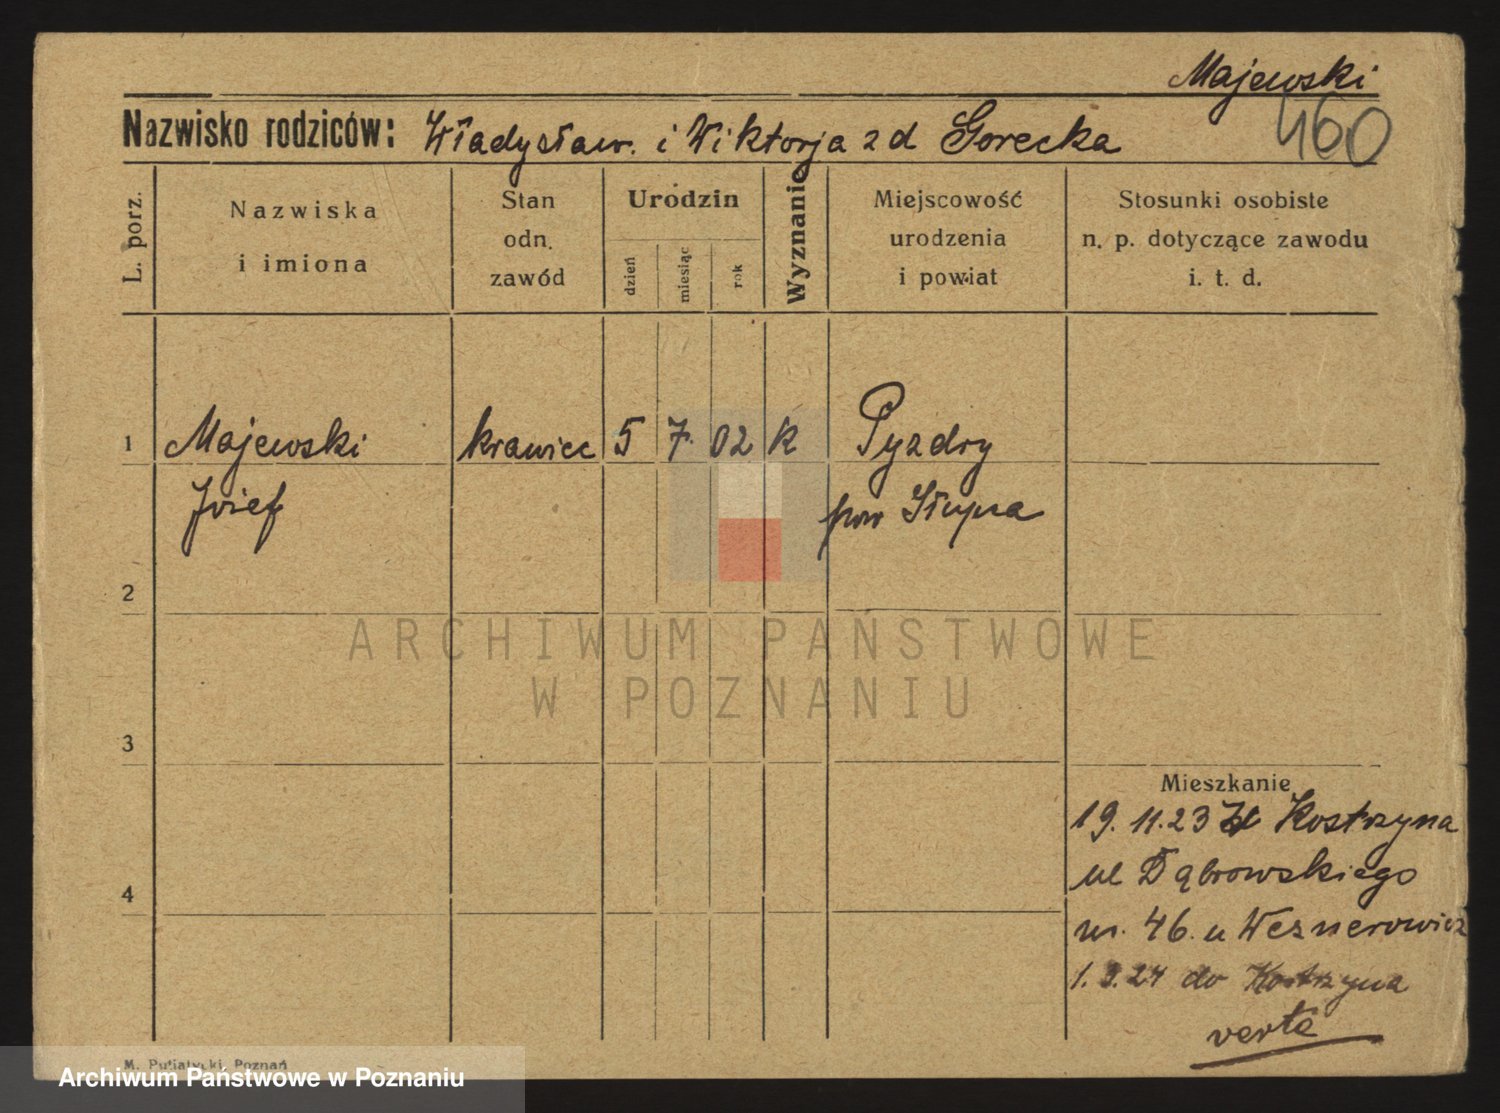 Majewski
460
Nazwisko rodziców: Władysław. i Wiktorja z d Gorecka
L. porz.
Nazwiska
i imiona
Stan
odn.
zawód
Urodzin
dzień
miesiąc
rok
Wyznanie
Miejscowość
urodzenia
i powiat
Stosunki osobiste
n. p. dotyczące zawodu
i. t. d.
1 Majewski krawiec 5 7. 02 k Pyzdry
Józef pow Słupca
2
ARCHIWUM PAŃSTWOWE
W POZNANIU
3
Mieszkanie
19. 11. 23 Z Kostrzyna
ul Dąbrowskiego
4
nr. 46. u Weznerowicz
1. 3. 24 do Kostrzyna
verte
M. Putiatycki, Poznań
Archiwum Państwowe w Poznaniu